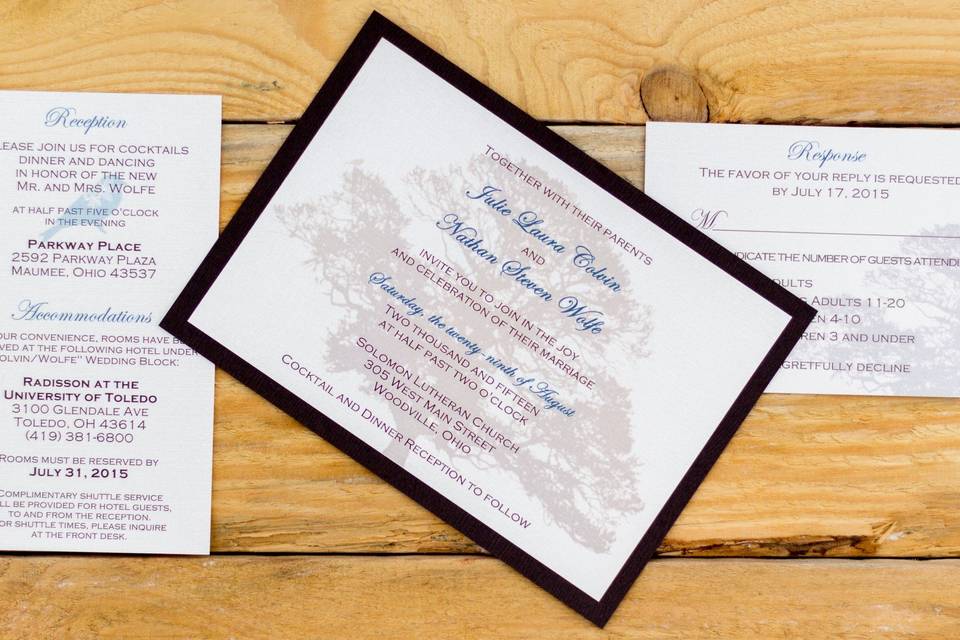 Reception
LEASE JOIN US FOR COCKTAILS
DINNER AND DANCING
IN HONOR OF THE NEW
MR. AND MRS. WOLFE
AT HALF PAST FIVE O'CLOCK
IN THE EVENING
PARKWAY PLACE
2592 PARKWAY PLAZA
MAUMEE, OHIO 43537
Accommodations
OUR CONVENIENCE, ROOMS HAVE BE
VED AT THE FOLLOWING HOTEL UNDER
OLVIN/WOLFE" WEDDING BLOCK:
RADISSON AT THE
UNIVERSITY OF TOLEDO
3100 GLENDALE AVE
TOLEDO, OH 43614
(419) 381-6800
ROOMS MUST BE RESERVED BY
JULY 31, 2015
COMPLIMENTARY SHUTTLE SERVICE
LL BE PROVIDED FOR HOTEL GUESTS,
TO AND FROM THE RECEPTION.
OR SHUTTLE TIMES, PLEASE INQUIRE
AT THE FRONT DESK.
TOGETHER WITH THEIR PARENTS
Julie Laura Colvin
AND
Nathan Steven Wolfe
INVITE YOU TO JOIN IN THE JOY
AND CELEBRATION OF THEIR MARRIAGE
Saturday, the twenty-ninth of August
TWO THOUSAND AND FIFTEEN
AT HALF PAST TWO O'CLOCK
SOLOMON LUTHERAN CHURCH
305 WEST MAIN STREET
WOODVILLE, OHIO
COCKTAIL AND DINNER RECEPTION TO FOLLOW
Response
THE FAVOR OF YOUR REPLY IS REQUESTED
BY JULY 17, 2015
M
DICATE THE NUMBER OF GUESTS ATTENDI
DULTS
G ADULTS 11-20
EN 4-10
REN 3 AND UNDER
GRETFULLY DECLINE